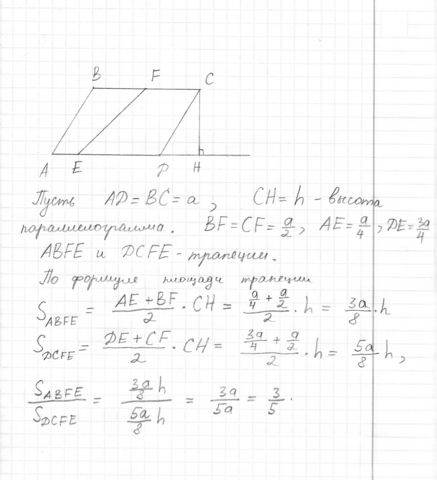 B F C
A E D H
Пусть AD = BC = a, CH = h - высота
параллелограмма. BF = CF = a/2, AE = a/4, DE = 3a/4
ABFE и DCFE - трапеции.
По формуле площади трапеции
S_ABFE = (AE + BF)/2 · CH = (a/4 + a/2)/2 · h = 3a/8 · h
S_DCFE = (DE + CF)/2 · CH = (3a/4 + a/2)/2 · h = 5a/8 h,
S_ABFE/S_DCFE = (3a/8 h)/(5a/8 h) = 3a/5a = 3/5.